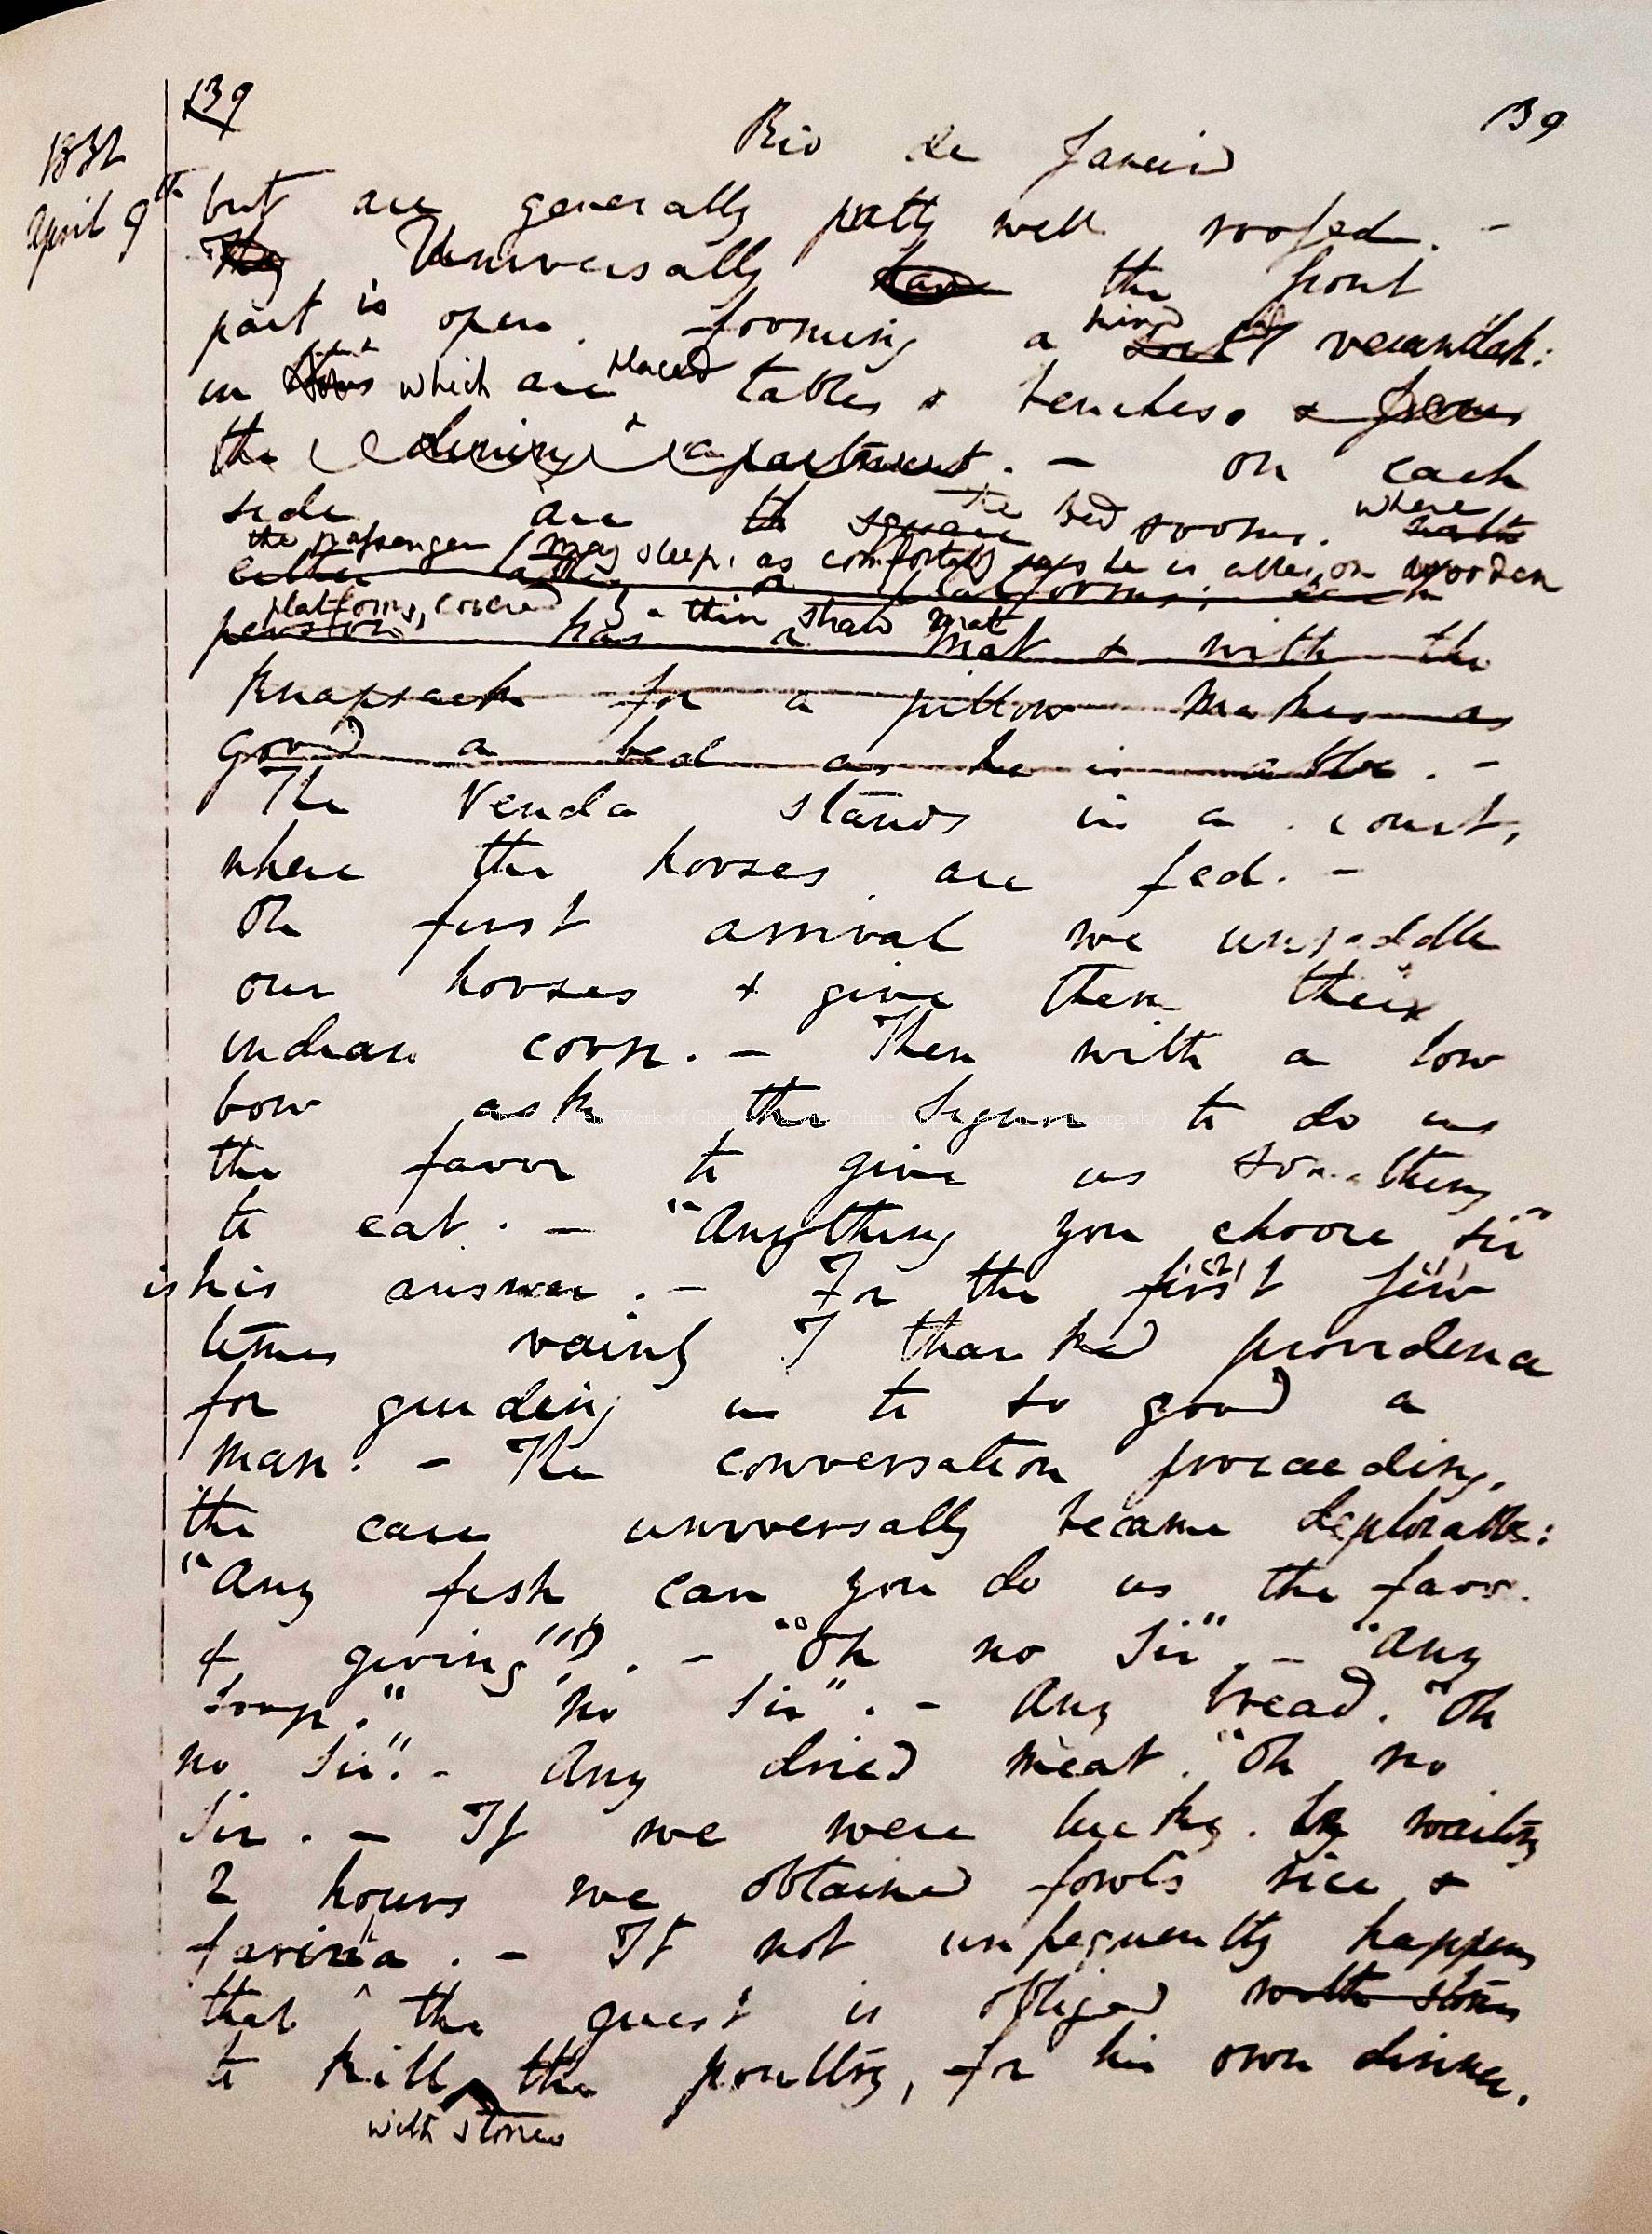 139
Rio de Janeiro
139
1832
April 9th
but are generally pretty well roofed. —
They Universally have the front
part is open. forming a kind sort of verandah:
in which are placed tables & benches. & forms
the dining apartment. — on each
side are the square the Bed rooms. where
the passenger may sleep, as comfortably as he is able, on wooden
platforms; each
platforms, covered by a thin straw mat
person has a mat & with the
knapsack for a pillow makes as
good a bed as he is able. —
The Venda stands in a court,
where the horses are fed. —
On first arrival we unsaddle
our horses & give them their
indian corn. — Then with a low
bow ask the Signor to do us
the favor to give us something
to eat. — "Anything you choose Sir"
is his answer. — For the first few
times vainly I thanked providence
for guiding us to so good a
man. — The conversation proceeding,
the case universally became deplorable:
"Any fish can you do us the favor
of giving"? — "Oh no Sir" — "Any
soup." "No Sir". — Any bread. "Oh
no Sir". — Any dried meat. "Oh no
Sir. — If we were lucky. by waiting
2 hours we obtained fowls rice &
farinha. — It not unfrequently happens
that the guest is obliged with stones
to kill the poultry, for his own dinner.
with stones